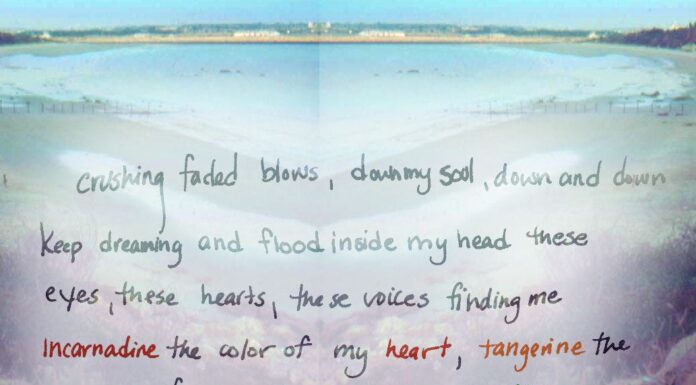 crushing faded blows, down my soul, down and down
Keep dreaming and flood inside my head these
eyes, these hearts, these voices finding me
Incarnadine the color of my heart, tangerine the